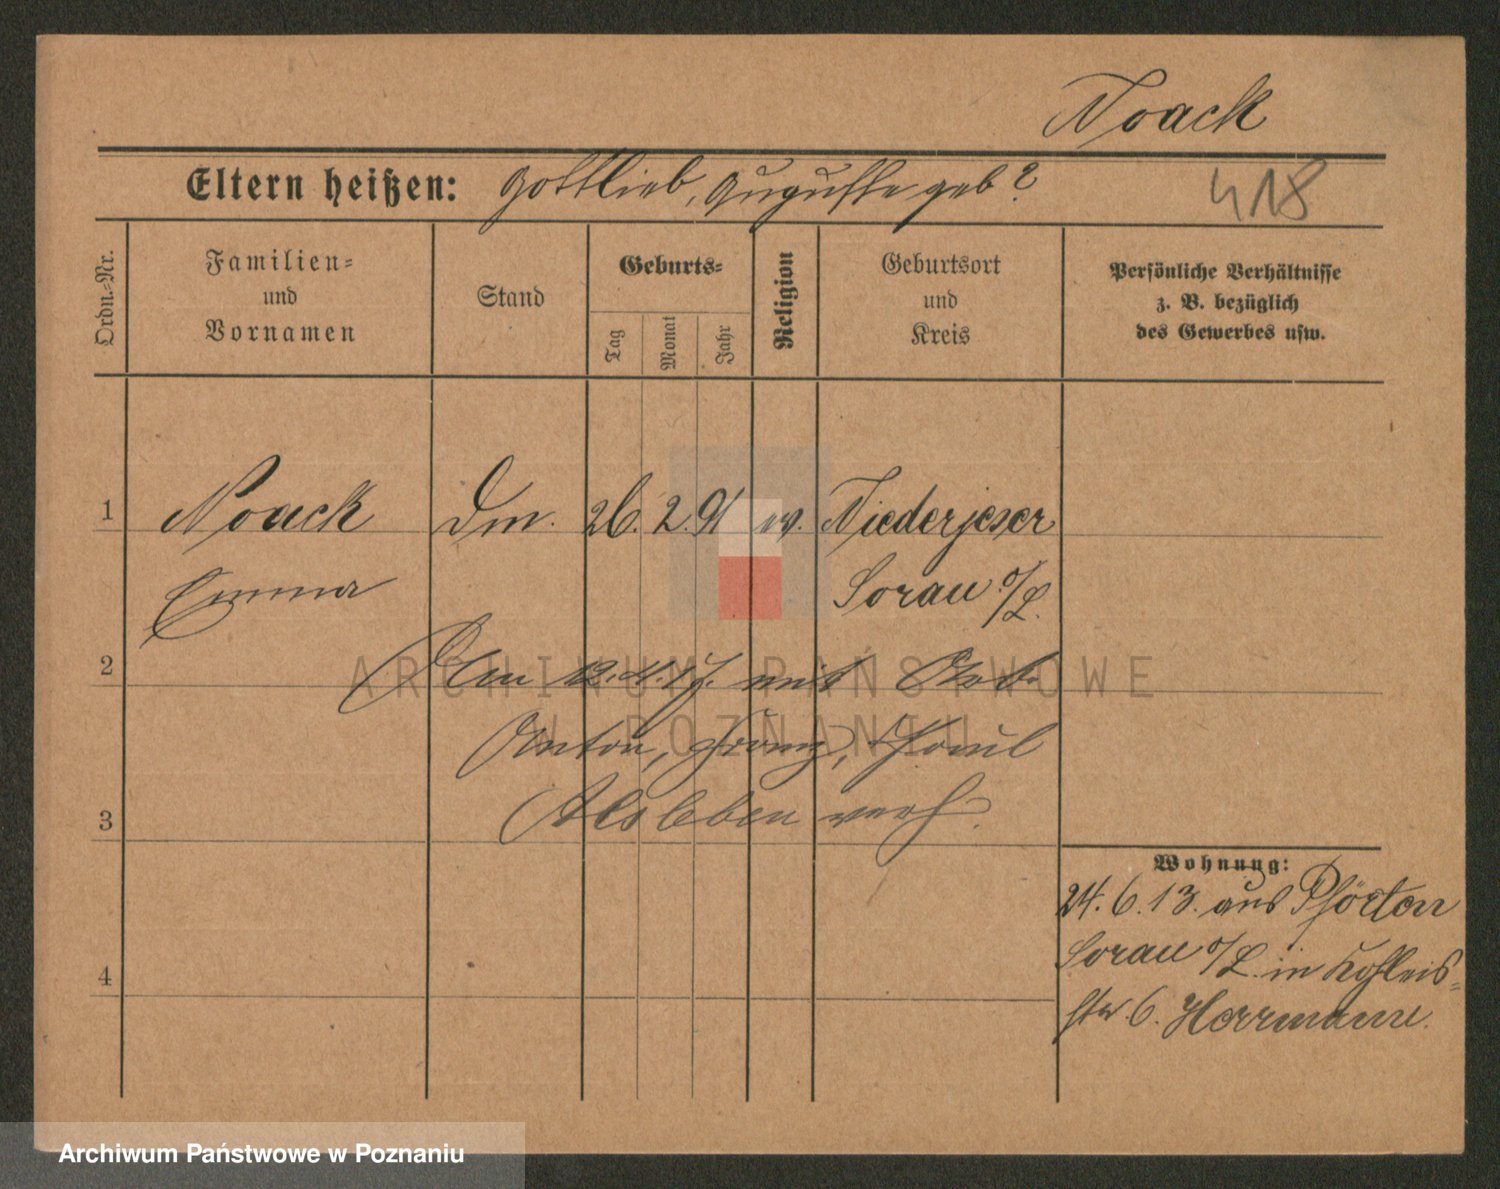 Noack
Eltern heißen: Gottlieb, Auguste geb?
418
Ordn.-Nr.
Familien-
und
Vornamen
Stand
Geburts-
Tag
Monat
Jahr
Religion
Geburtsort
und
Kreis
Persönliche Verhältnisse
z. B. bezüglich
des Gewerbes usw.
1 Noack Dm. 26. 2. 91 ev. Niederjeser
Emma Sorau N/L.
2 Am 12.4.17. mit Arb.
Anton, Franz, Paul
3 Alsleben verh.
4
Wohnung:
24. 6. 13. aus Pförten
Sorau N/L. in
str. 6. Herrmann.
ARCHIWUM PAŃSTWOWE
W POZNANIU
Archiwum Państwowe w Poznaniu